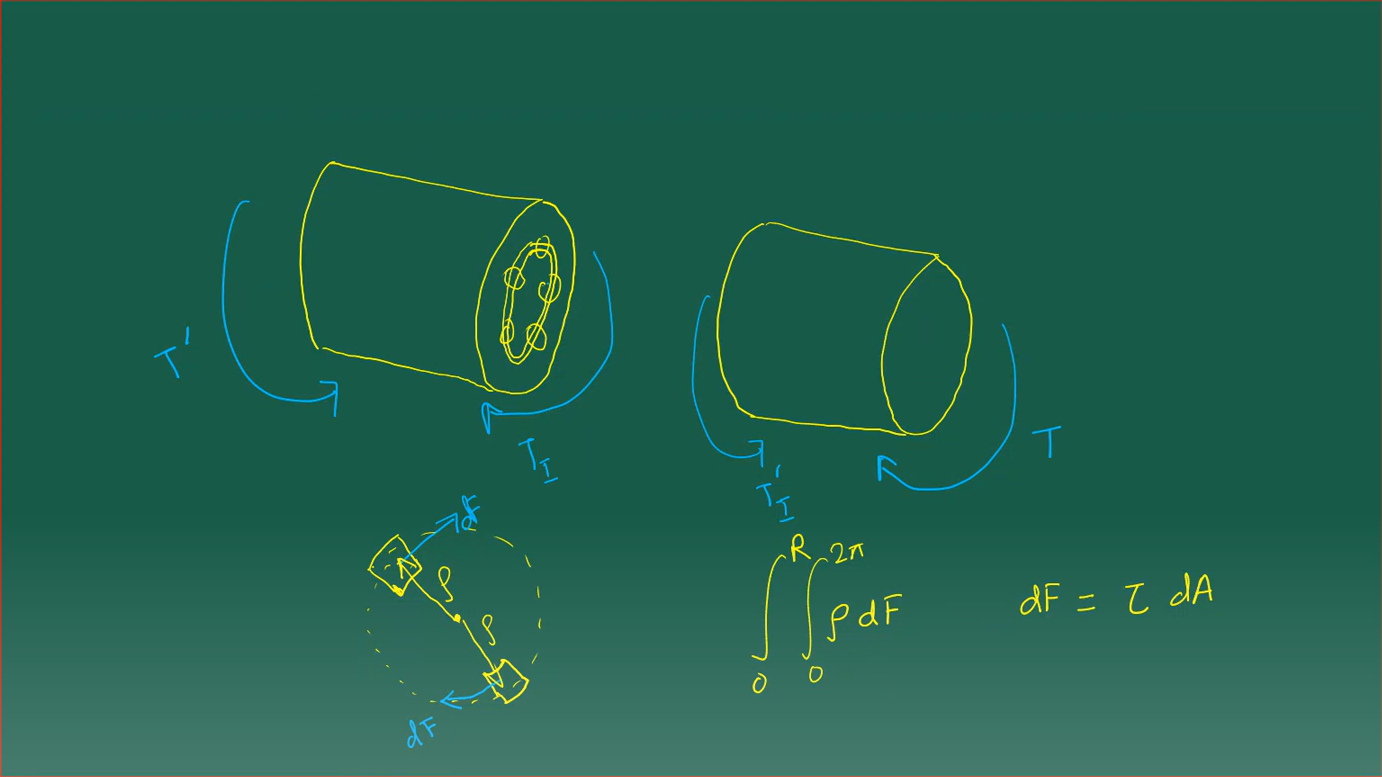 T'
T_I
T'_I
T
dF
ρ
ρ
dF
∫_0^R ∫_0^{2π} ρ dF
dF = τ dA